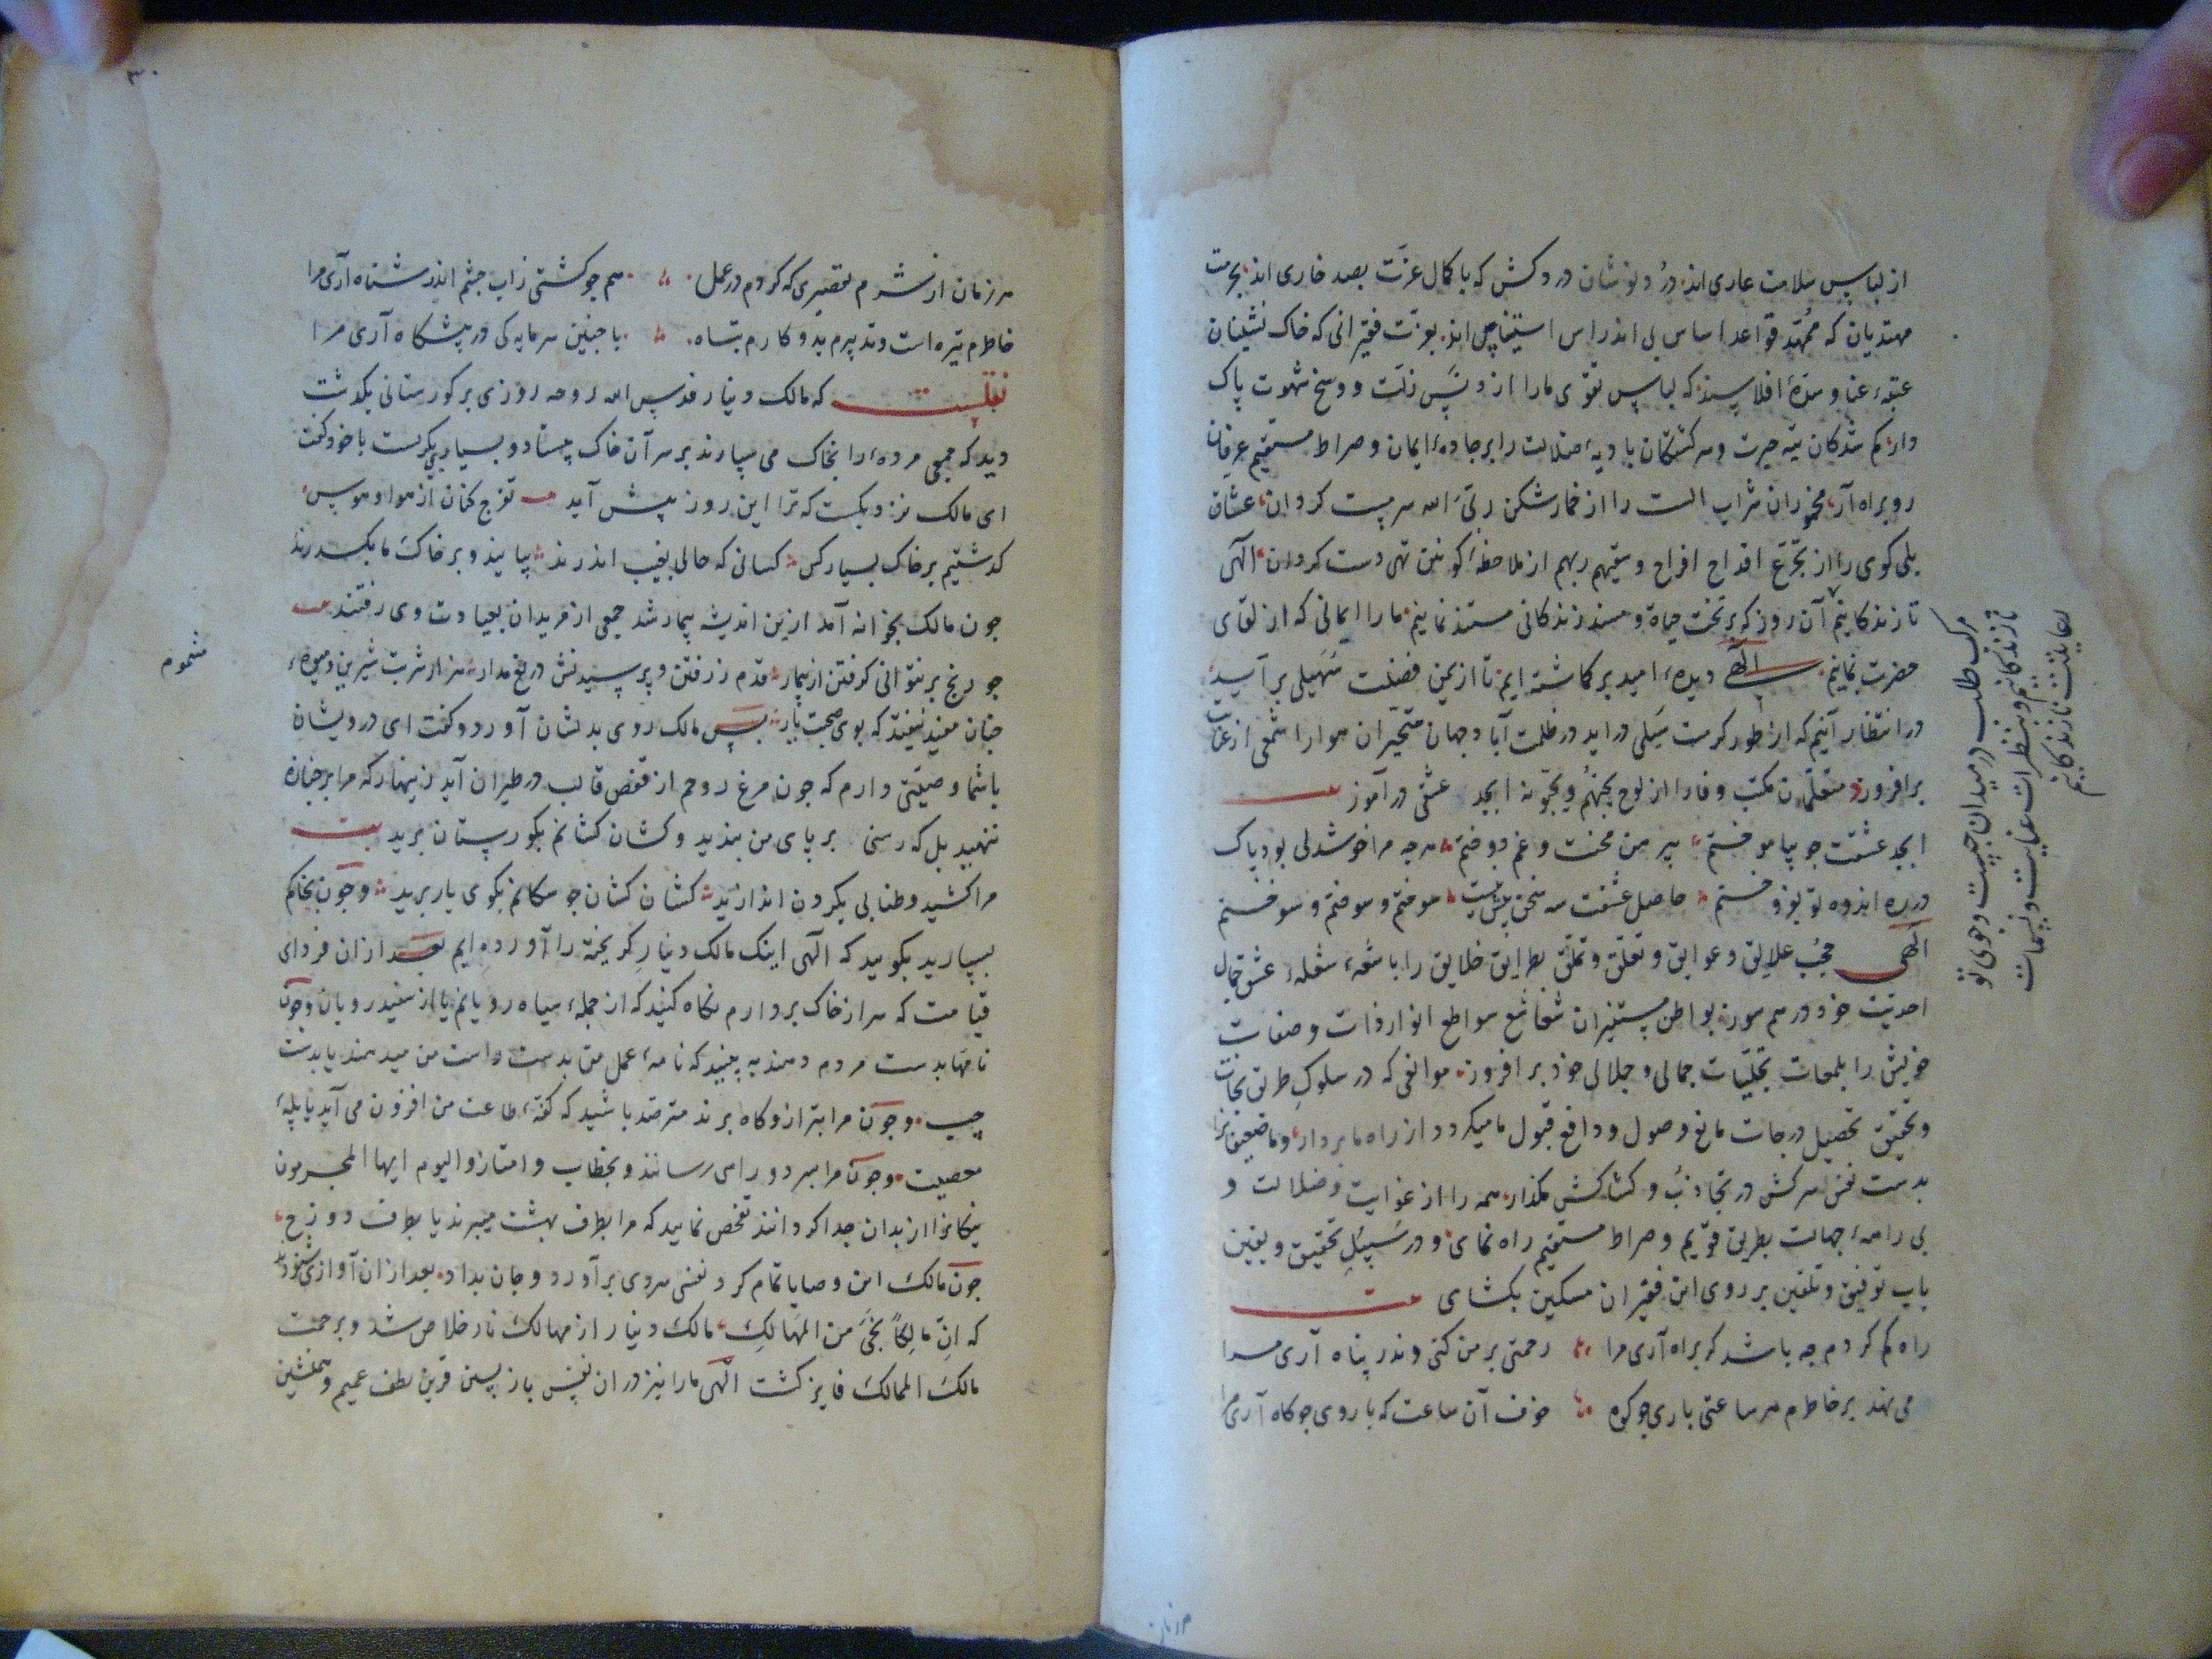 از لباس سلامت عاری اند در دلوشان درد کش که با کمال عزت بصد خاری اند بحرمت
مهتدیان که ممهد قواعد اساس بی اندراس اند بعزت فقیرانی که خاک نشینان
عتبهٔ عنا و سدهٔ افلاسند که لباس تقوی ما را از دنس زلت و وسخ شهوت پاک
دار کم شدکان تیه حیرت و سرکشتکان بادیهٔ ضلالت را بر جادهٔ ایمان و صراط مستقیم عرفان
رو براه آر مخموران شراب الست را از خمار شکن ربی الله سرمست کردان عشاق
بلی کوی را از تجرع اقداح افراح وسقیهم ربهم از ملاحظهٔ کونین تهی دست کردان الهی
تا زندکانیم آن روز که بر تخت حیاة و مسند زندکانی مستند نمانیم ما را ایمانی که از لقای
حضرت نمانیم الهی دیدهٔ امید بر کماشته ایم تا از یمن فضلت سهیلی بر آید
در انتظار آنیم که از طور کرمت در اید در ظلمت آباد جهان متحیران هوا را شمعی از عنایت
برافروز متعلمان مکتب وفا را از لوح یحبهم ویحبونه ابجد عشق در آموز
ابجد عشقت جو بیاموختم پیرهن محنت و غم دوختم هرجه مرا خوشدلی بود پاک
در ره اندوه تو بفروختم حاصل عشقت سه سخن بیش نیست سوختم و سوختم و سوختم
الهی حجب علایق و عوایق و تعلق و تملق بطرایق خلایق را باشعهٔ شعلهٔ عشق جمال
احدیت خود در هم سوز بواطن مستنیران شعاشع سواطع انوار ذات و صفات
خویش را بلمعات تجلیات جمالی و جلالی خود بر افروز موانعی که در سلوک طریق نجات
و تحقیق تحصیل درجات مانع وصول و دافع قبول ما میکردد از راه ما بردار و ما ضعیفانرا
بدست نفس سرکش در تجاذب و کشاکش مکذار همه را از غوایت و ضلالت و
بی راههٔ جهالت بطریق قویم و صراط مستقیم راه نمای و در سبیل تحقیق و یقین
باب توفیق و تلقین بر روی این فقیران مسکین بکشای
راه کم کردم جه باشد کر براه آری مرا رحمتی بر من کنی وندر پناه آری مرا
می نهد بر خاطرم هر ساعتی باری جو کوه خوف آن ساعت که با روی جو کاه آری مرا
مرکب طلب در میدان جست و جوی تو
تا زندکانیم و بنظرات عنایت و نسمات
رعایتت تازندکانیم
هرزمان
۳۰
هرزمان از شرم تقصیری که کردم در عمل هم جو کشتی ز اب جشم اندر شناه آری مرا
خاطرم تیره است و تدبیرم بد و کارم تباه با جنین سرمایه کی در پیشکاه آری مرا
نقلست که مالک دینار قدس الله روحه روزی بر کورستانی بکذشت
دید که جمعی مردهٔ را بخاک می سپارند بر سر آن خاک بیستاد و بسیار بکریست با خود کفت
ای مالک نزدیکست که ترا این روز پیش آید تفرج کنان از هوا و هوس
کذشتیم بر خاک بسیار کس کسانی که حالی بغیب اندرند بیایند و بر خاک ما بکذرند
جون مالک بخانه آمد ازین اندیشه بیمار شد جمعی از مریدان بعیادت وی رفتند
جو رنج بر نتوانی کرفتن از بیمار قدم ز رفتن و پرسیدنش دریغ مدار هزار شربت شیرین و میوهٔ
مشموم
جنان مفید نیفتد که بوی صحبت یار پس مالک روی بدیشان آورد و کفت ای درویشان
باشما وصیتی دارم که جون مرغ روحم از قفص قالب در طیران آید زینهار که مرا بر جنازه
ننهید بل که رسنی بر پای من بندید و کشان کشانم بکورستان برید بیت
مرا کشید و طنابی بکردن اندازید کشان کشان جو سکانم بکوی یار برید و جون بخاکم
بسپارید بکویید که الهی اینک مالک دینار کریخته را آورده ایم بعد از ان فردای
قیامت که سر از خاک بردارم نکاه کنید که از جملهٔ سیاه رویانم یا از سفید رویان و جون
نامها بدست مردم دهند به بینید که نامهٔ عمل من بدست راست من میدهند یا بدست
جب و جون مرا بترازوکاه برند مترصد باشید که کفهٔ طاعت من افزون می آید یا پلهٔ
معصیت و جون مرا بسر دو راهی رسانند و بخطاب وامتازوا الیوم ایها المجرمون
نیکانرا از بدان جدا کردانند تفحص نمایید که مرا بطرف بهشت میبرند یا بطرف دوزخ
جون مالک این وصایا تمام کرد نفسی سردی برآورد و جان بداد بعد از ان آوازی شنودند
که ان مالکا نجی من المهالک مالک دینار از مهالک نار خلاص شد و برحمت
مالک الممالک فایز کشت الهی ما را نیز در ان نفس باز پسین قرین لطف عمیم و همنشین